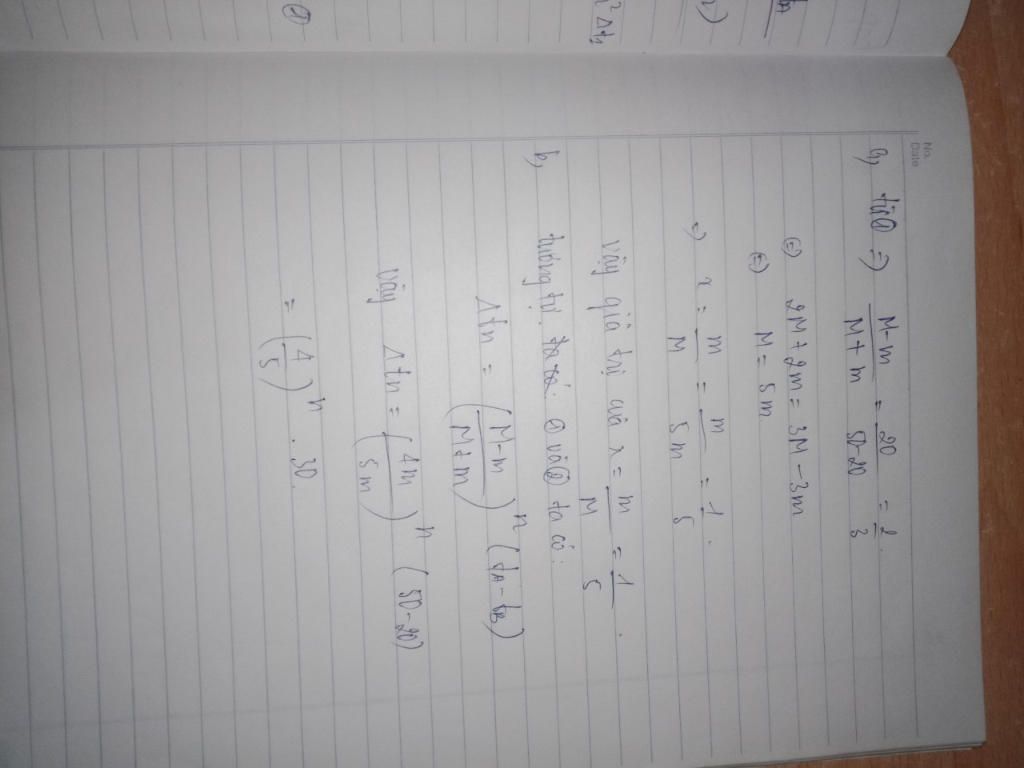 No.
Date
a, từ ② ⇒ M-m / M+m = 20 / 50-20 = 2 / 3.
⇔ 2M + 2m = 3M - 3m
⇔ M = 5m
⇒ x = m / M = m / 5m = 1 / 5.
vậy giá trị của x = m / M = 1 / 5.
b, tương tự ① và ② ta có:
Δtn = (M-m / M+m)^n (tA - tB)
vậy Δtn = (4m / 5m)^n (50-20)
= (4 / 5)^n . 30.